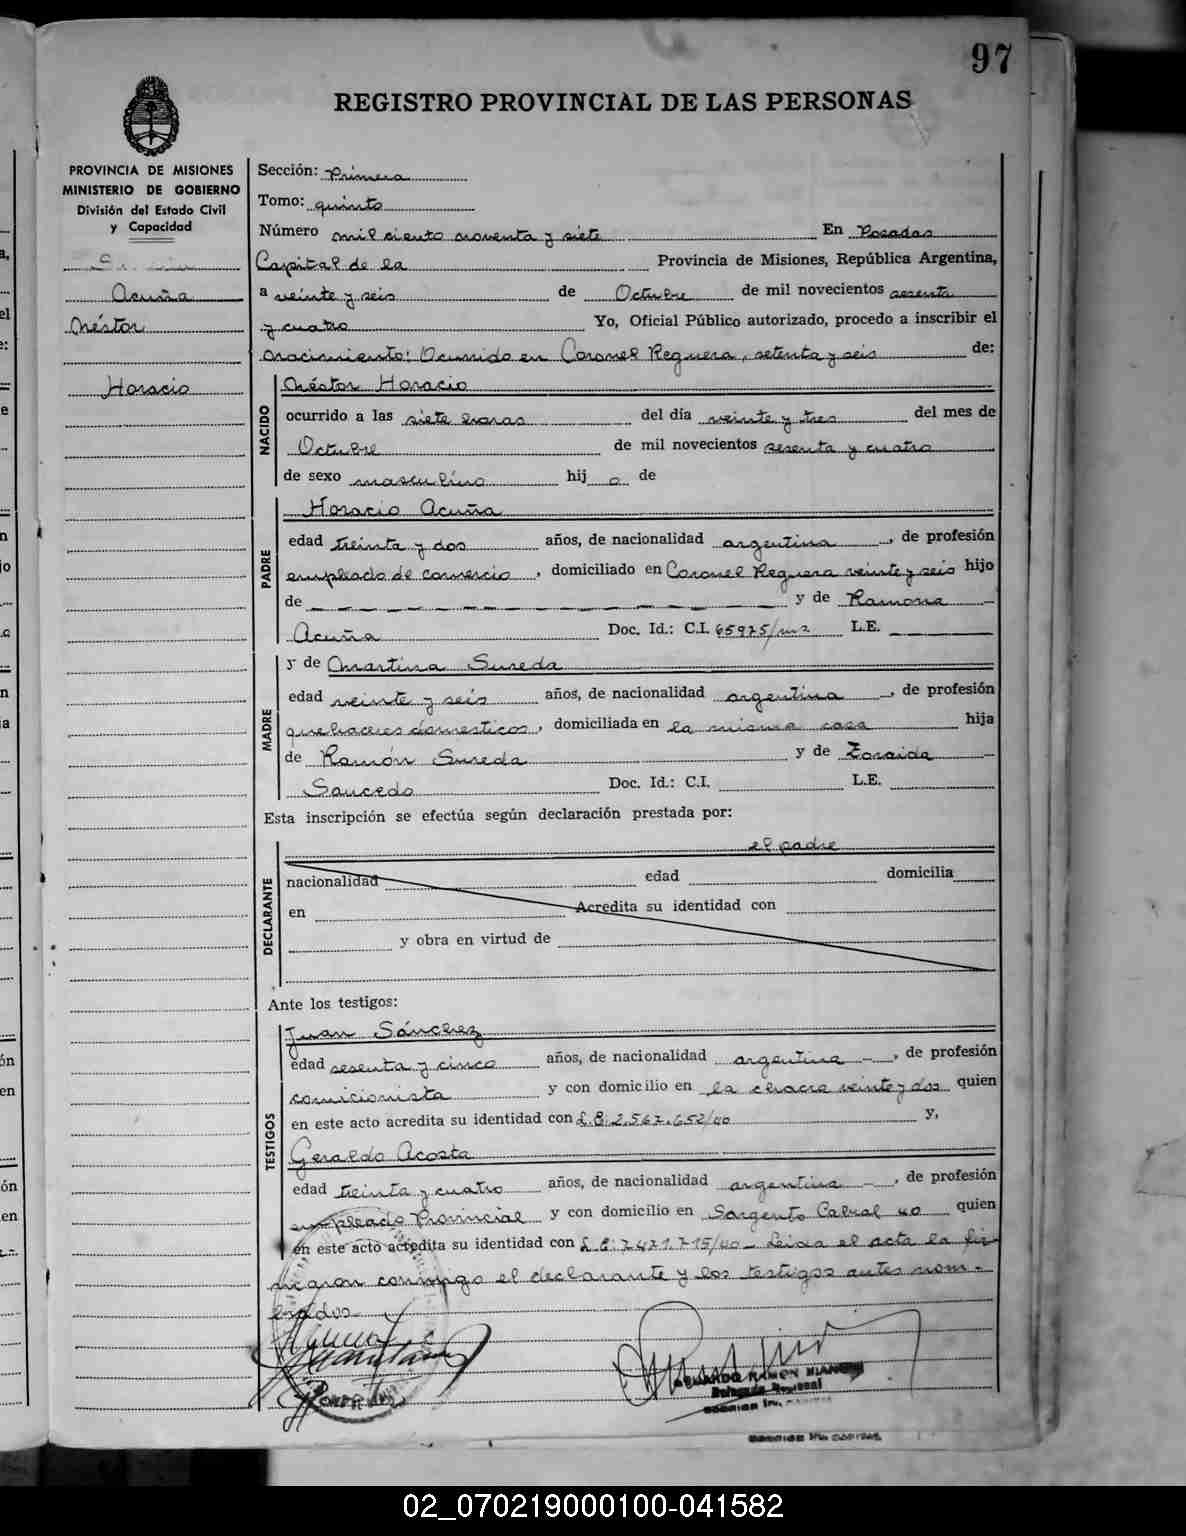 97
REGISTRO PROVINCIAL DE LAS PERSONAS
PROVINCIA DE MISIONES
MINISTERIO DE GOBIERNO
División del Estado Civil
y Capacidad
Acuña
Néstor
Horacio
Sección: Primera
Tomo: quinto
Número mil ciento noventa y siete En Posadas
Capital de la Provincia de Misiones, República Argentina,
a veinte y seis de Octubre de mil novecientos sesenta
y cuatro Yo, Oficial Público autorizado, procedo a inscribir el
nacimiento: Ocurrido en Coronel Reguera, setenta y seis de:
NACIDO
Néstor Horacio
ocurrido a las siete horas del día veinte y tres del mes de
Octubre de mil novecientos sesenta y cuatro
de sexo masculino hij o de
PADRE
Horacio Acuña
edad treinta y dos años, de nacionalidad argentina —, de profesión
empleado de comercio, domiciliado en Coronel Reguera veinte y seis hijo
de — — — — — — — — — — — — y de Ramona —
Acuña Doc. Id.: C.I. 65975/m2 L.E. ———
MADRE
y de Martina Sureda
edad veinte y seis años, de nacionalidad argentina —, de profesión
quehaceres domesticos, domiciliada en la misma casa hija
de Ramón Sureda y de Zoraida —
Saucedo Doc. Id.: C.I. L.E.
Esta inscripción se efectúa según declaración prestada por:
DECLARANTE
el padre
nacionalidad edad domicilia
en Acredita su identidad con
y obra en virtud de
Ante los testigos:
TESTIGOS
Juan Sánchez
edad sesenta y cinco años, de nacionalidad argentina —, de profesión
comicionista y con domicilio en la chacra veinte y dos quien
en este acto acredita su identidad con L.E: 2.567.652/00 y,
Geraldo Acosta
edad treinta y cuatro años, de nacionalidad argentina —, de profesión
empleado Provincial y con domicilio en Sargento Cabral 40 quien
en este acto acredita su identidad con L.E: 7.471.715/00 — Leida el acta la fir-
maron conmigo el declarante y los testigos antes nom-
brados
RAMON
Delegado Regional
02_070219000100-041582